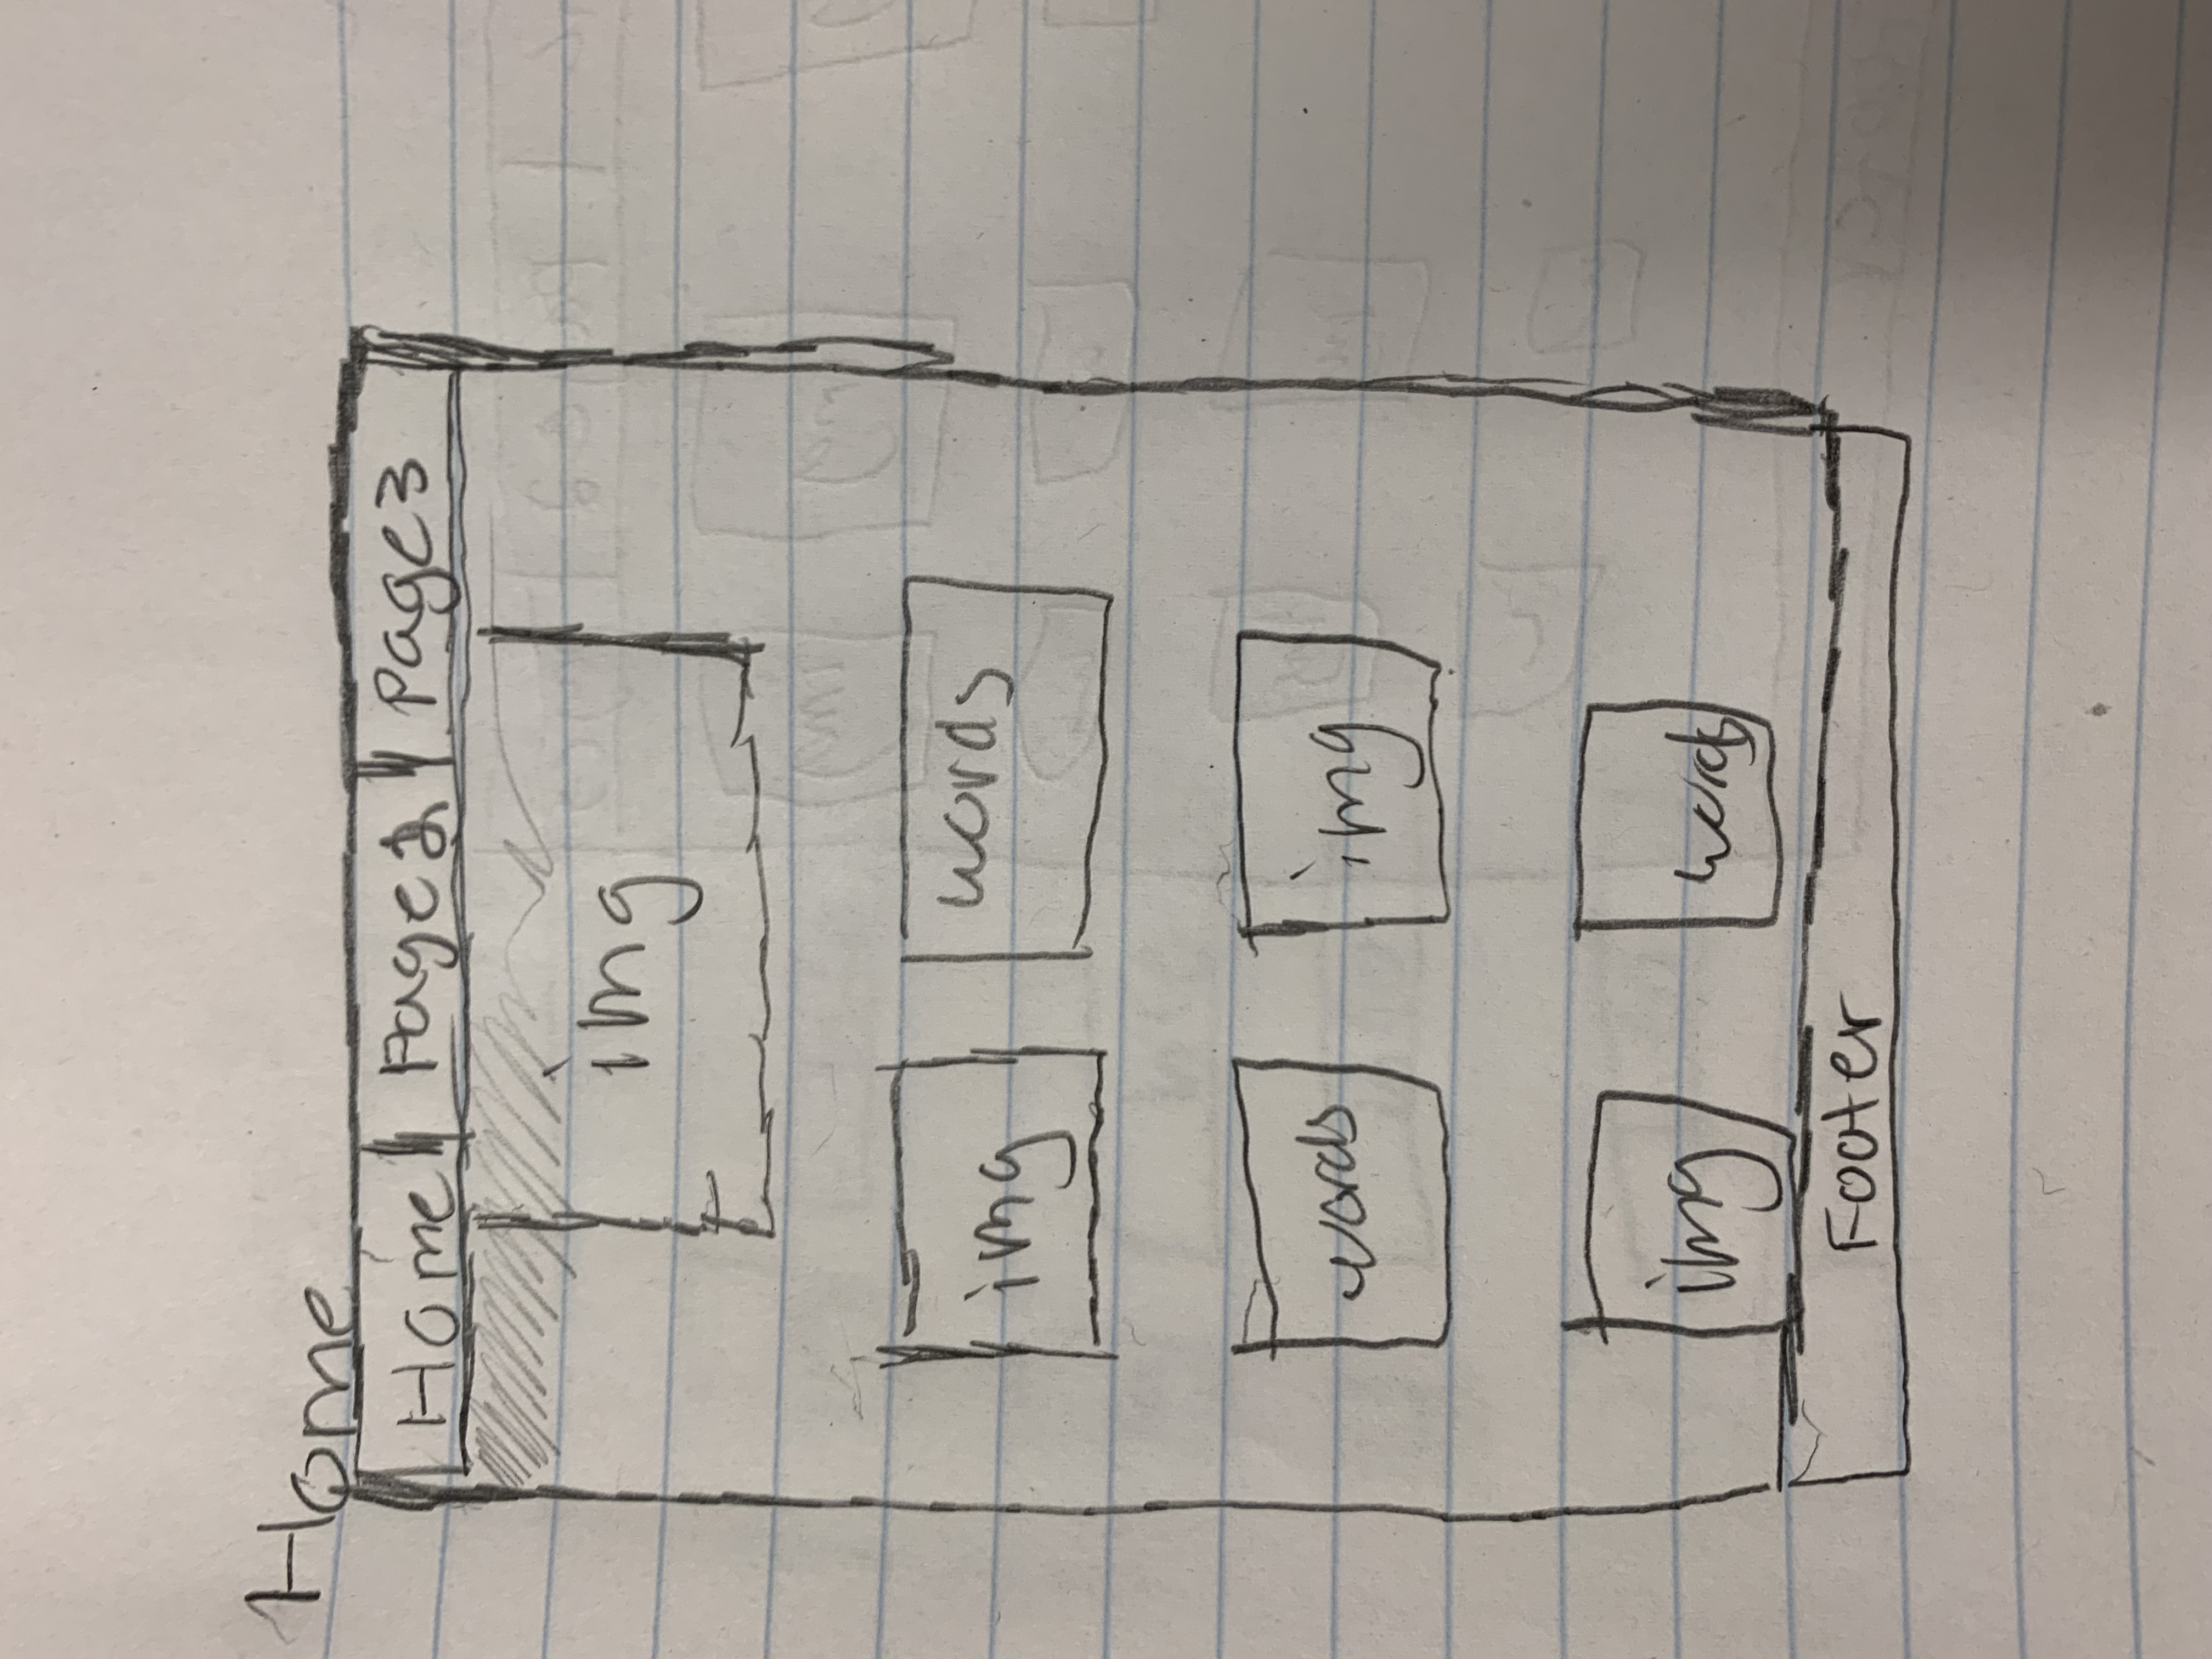 Home
Home Page2 Page3
img
img words
words img
img words
Footer